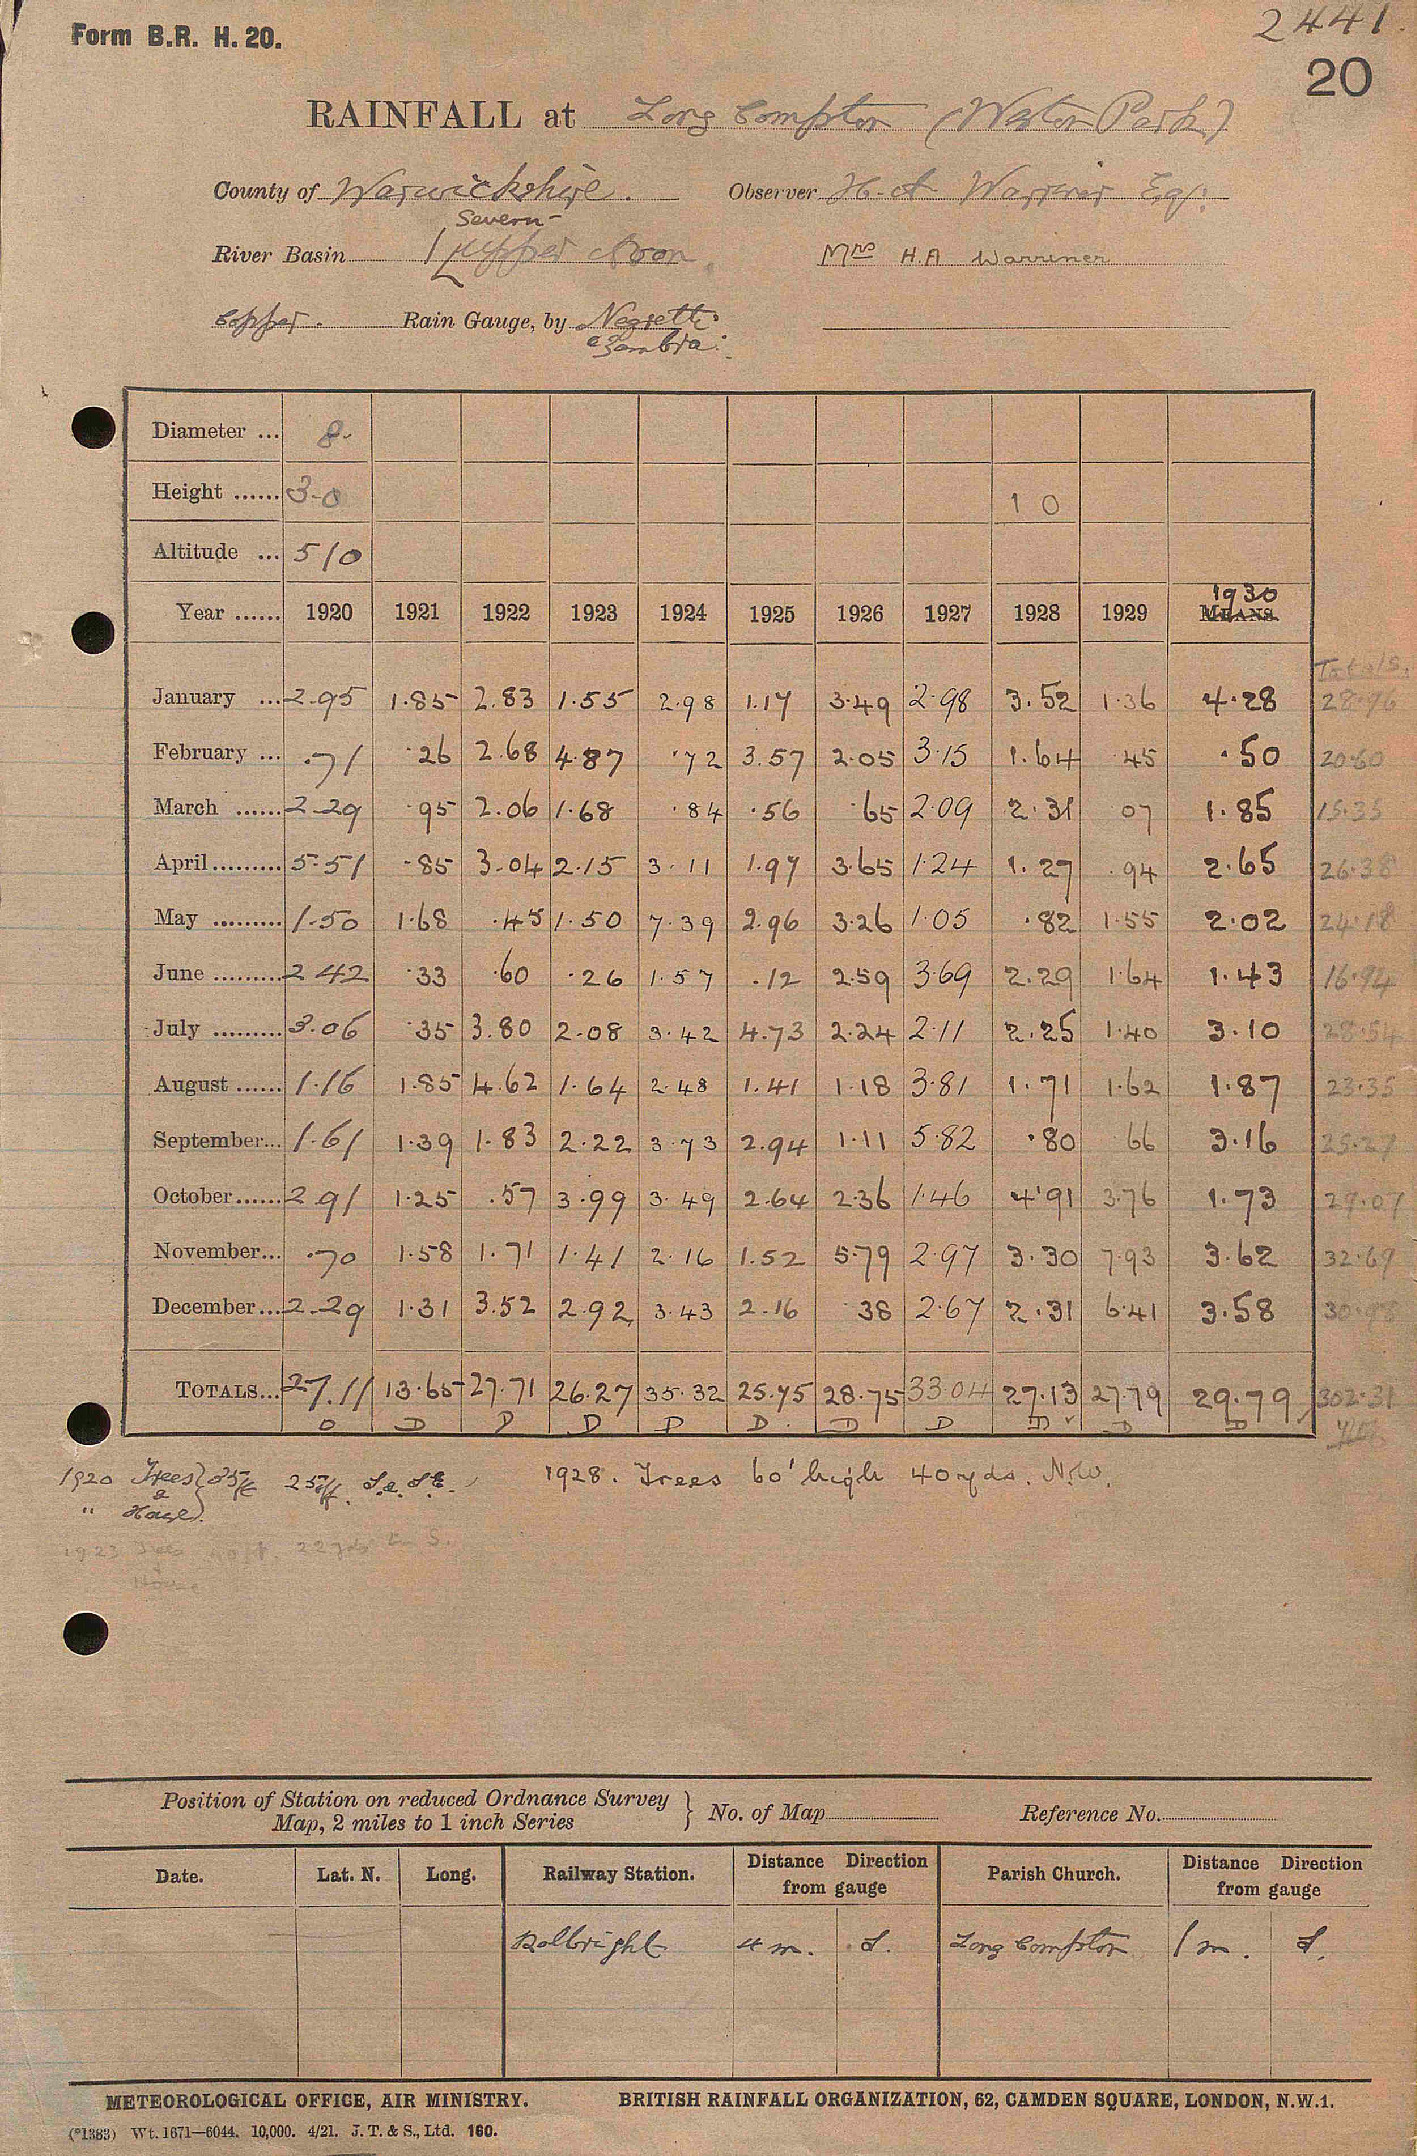 Form B.R. H. 20.
2441.
20
RAINFALL at Long Compton (Weston Park)
County of Warwickshire. Observer H. A Warriner Esq.
Severn -
River Basin Upper Avon. Mrs H.A Warriner
Copper. Rain Gauge, by Negretti
& Zambra.
Diameter ... 8.
Height ...... 3-0 1 0
Altitude ... 510
1930
Year ...... 1920 1921 1922 1923 1924 1925 1926 1927 1928 1929 MEANS.
Totals.
January ... 2.95 1.85 2.83 1.55 2.98 1.17 3.49 2.98 3.52 1.36 4.28 28.96
February ... .71 .26 2.68 4.87 .72 3.57 2.05 3.15 1.64 45 .50 20.60
March ...... 2.29 .95 2.06 1.68 .84 .56 .65 2.09 2.31 07 1.85 15.35
April ......... 5.51 .85 3.04 2.15 3.11 1.97 3.65 1.24 1.27 .94 2.65 26.38
May ......... 1.50 1.68 .45 1.50 7.39 2.96 3.26 1.05 .82 1.55 2.02 24.18
June ......... 2 42 .33 .60 .26 1.57 .12 2.59 3.69 2.29 1.64 1.43 16.94
July ......... 3.06 .35 3.80 2.08 3.42 4.73 2.24 2.11 2.25 1.40 3.10 28.54
August ...... 1.16 1.85 4.62 1.64 2.48 1.41 1.18 3.81 1.71 1.62 1.87 23.35
September... 1.61 1.39 1.83 2.22 3.73 2.94 1.11 5.82 .80 66 3.16 25.27
October ...... 2.91 1.25 .57 3.99 3.49 2.64 2.36 1.46 4.91 3.76 1.73 29.07
November... .70 1.58 1.71 1.41 2.16 1.52 5.79 2.97 3.30 7.93 3.62 32.69
December ... 2.29 1.31 3.52 2.92 3.43 2.16 38 2.67 2.31 6.41 3.58 30.98
TOTALS... 27.11 13.65 27.71 26.27 35.32 25.75 28.75 33.04 27.13 27.79 29.79 302.31
D D D D D D D D D D
1920 Trees 35ft 25ft. S.e. S.E. 1928. Trees 60' high 40 yds. N.W.
" House
1923 Trees 40 ft. 22 yds S.
House
Position of Station on reduced Ordnance Survey
Map, 2 miles to 1 inch Series
No. of Map Reference No.
Date. Lat. N. Long. Railway Station. Distance Direction from gauge Parish Church. Distance Direction from gauge
Rolbright 4 m. S. Long Compton 1 m. S.
METEOROLOGICAL OFFICE, AIR MINISTRY. BRITISH RAINFALL ORGANIZATION, 62, CAMDEN SQUARE, LONDON, N.W.1.
(*1383) Wt. 1671—6044. 10,000. 4/21. J. T. & S., Ltd. 160.